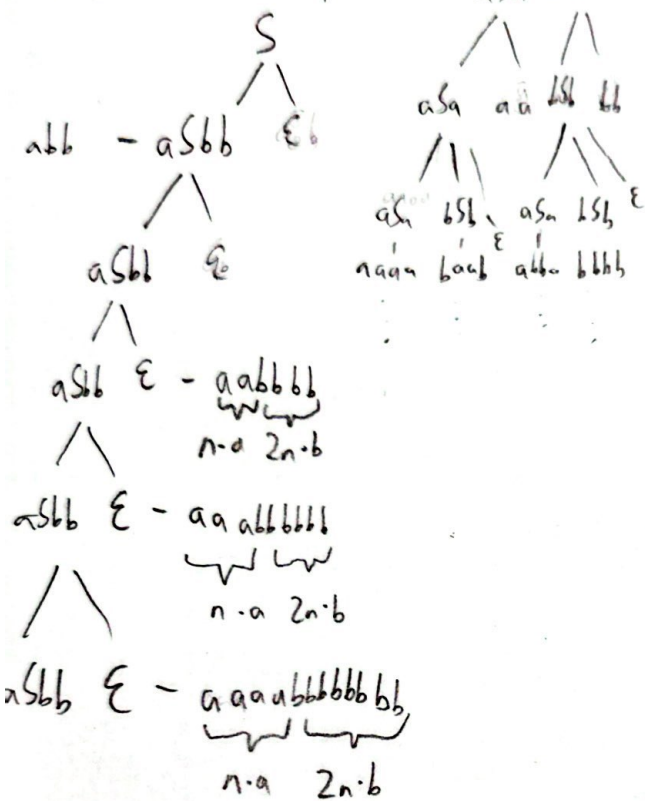 S
abb - aSbb ε
aSbb ε
aSbb ε - aabbbb
n·a 2n·b
aSbb ε - aaabbbbbb
n·a 2n·b
aSbb ε - aaaabbbbbbbb
n·a 2n·b
aSa aa bSb bb
aSa bSb ε aSa bSb ε
aaaa baab abba bbbb